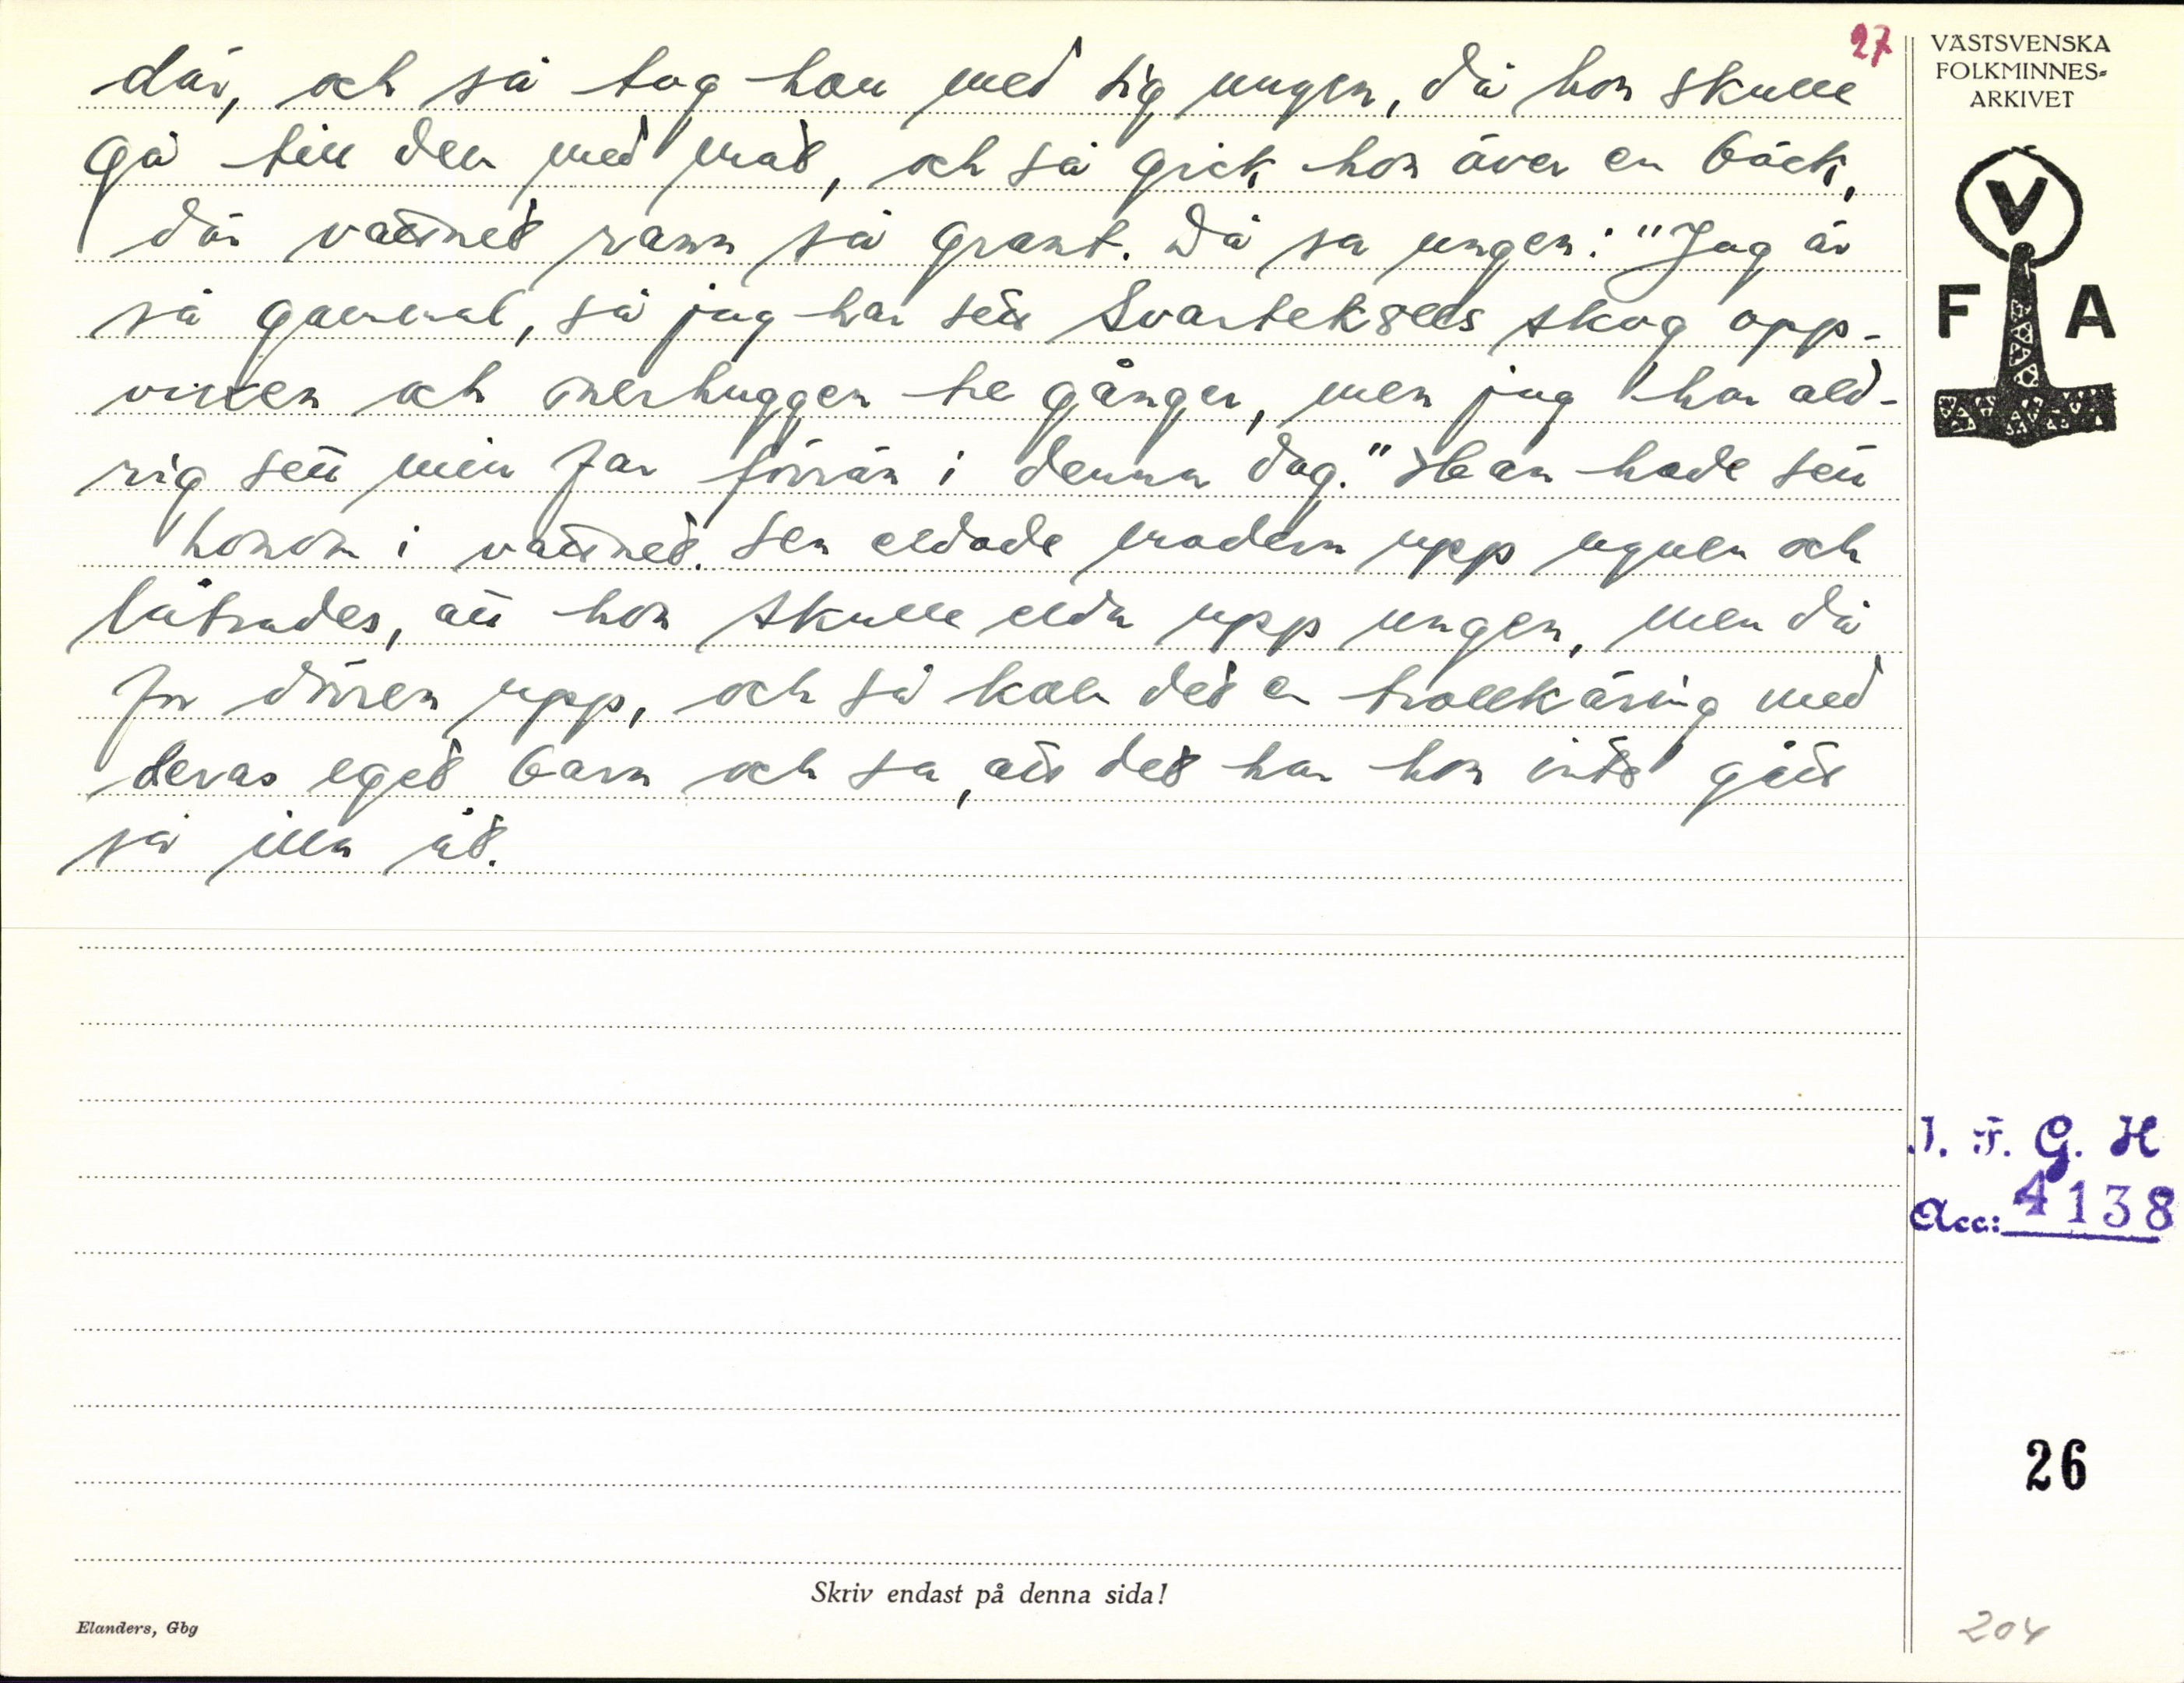 27
där, och så tog hon med sig ungen, då hon skulle
gå till den med mat, och så gick hon över en bäck,
där vattnet rann så grant. Då sa ungen: "Jag är
så gammal, så jag har sett Svartekse​lls skog opp-
vuxen och nerhuggen tre gånger, men jag har ald-
rig sett min far förrän i denna dag." Han hade sett
honom i vattnet. Sen eldade modern upp ugnen och
låtsades, att hon skulle elda upp ungen, men då
for dörren upp, och så kom det en trollkäring med
deras eget barn och sa, att det har hon inte gått
så illa åt.
VÄSTSVENSKA
FOLKMINNES-
ARKIVET
V
F A
I. F. G. H
Acc: 4138
26
Skriv endast på denna sida!
Elanders, Gbg
204